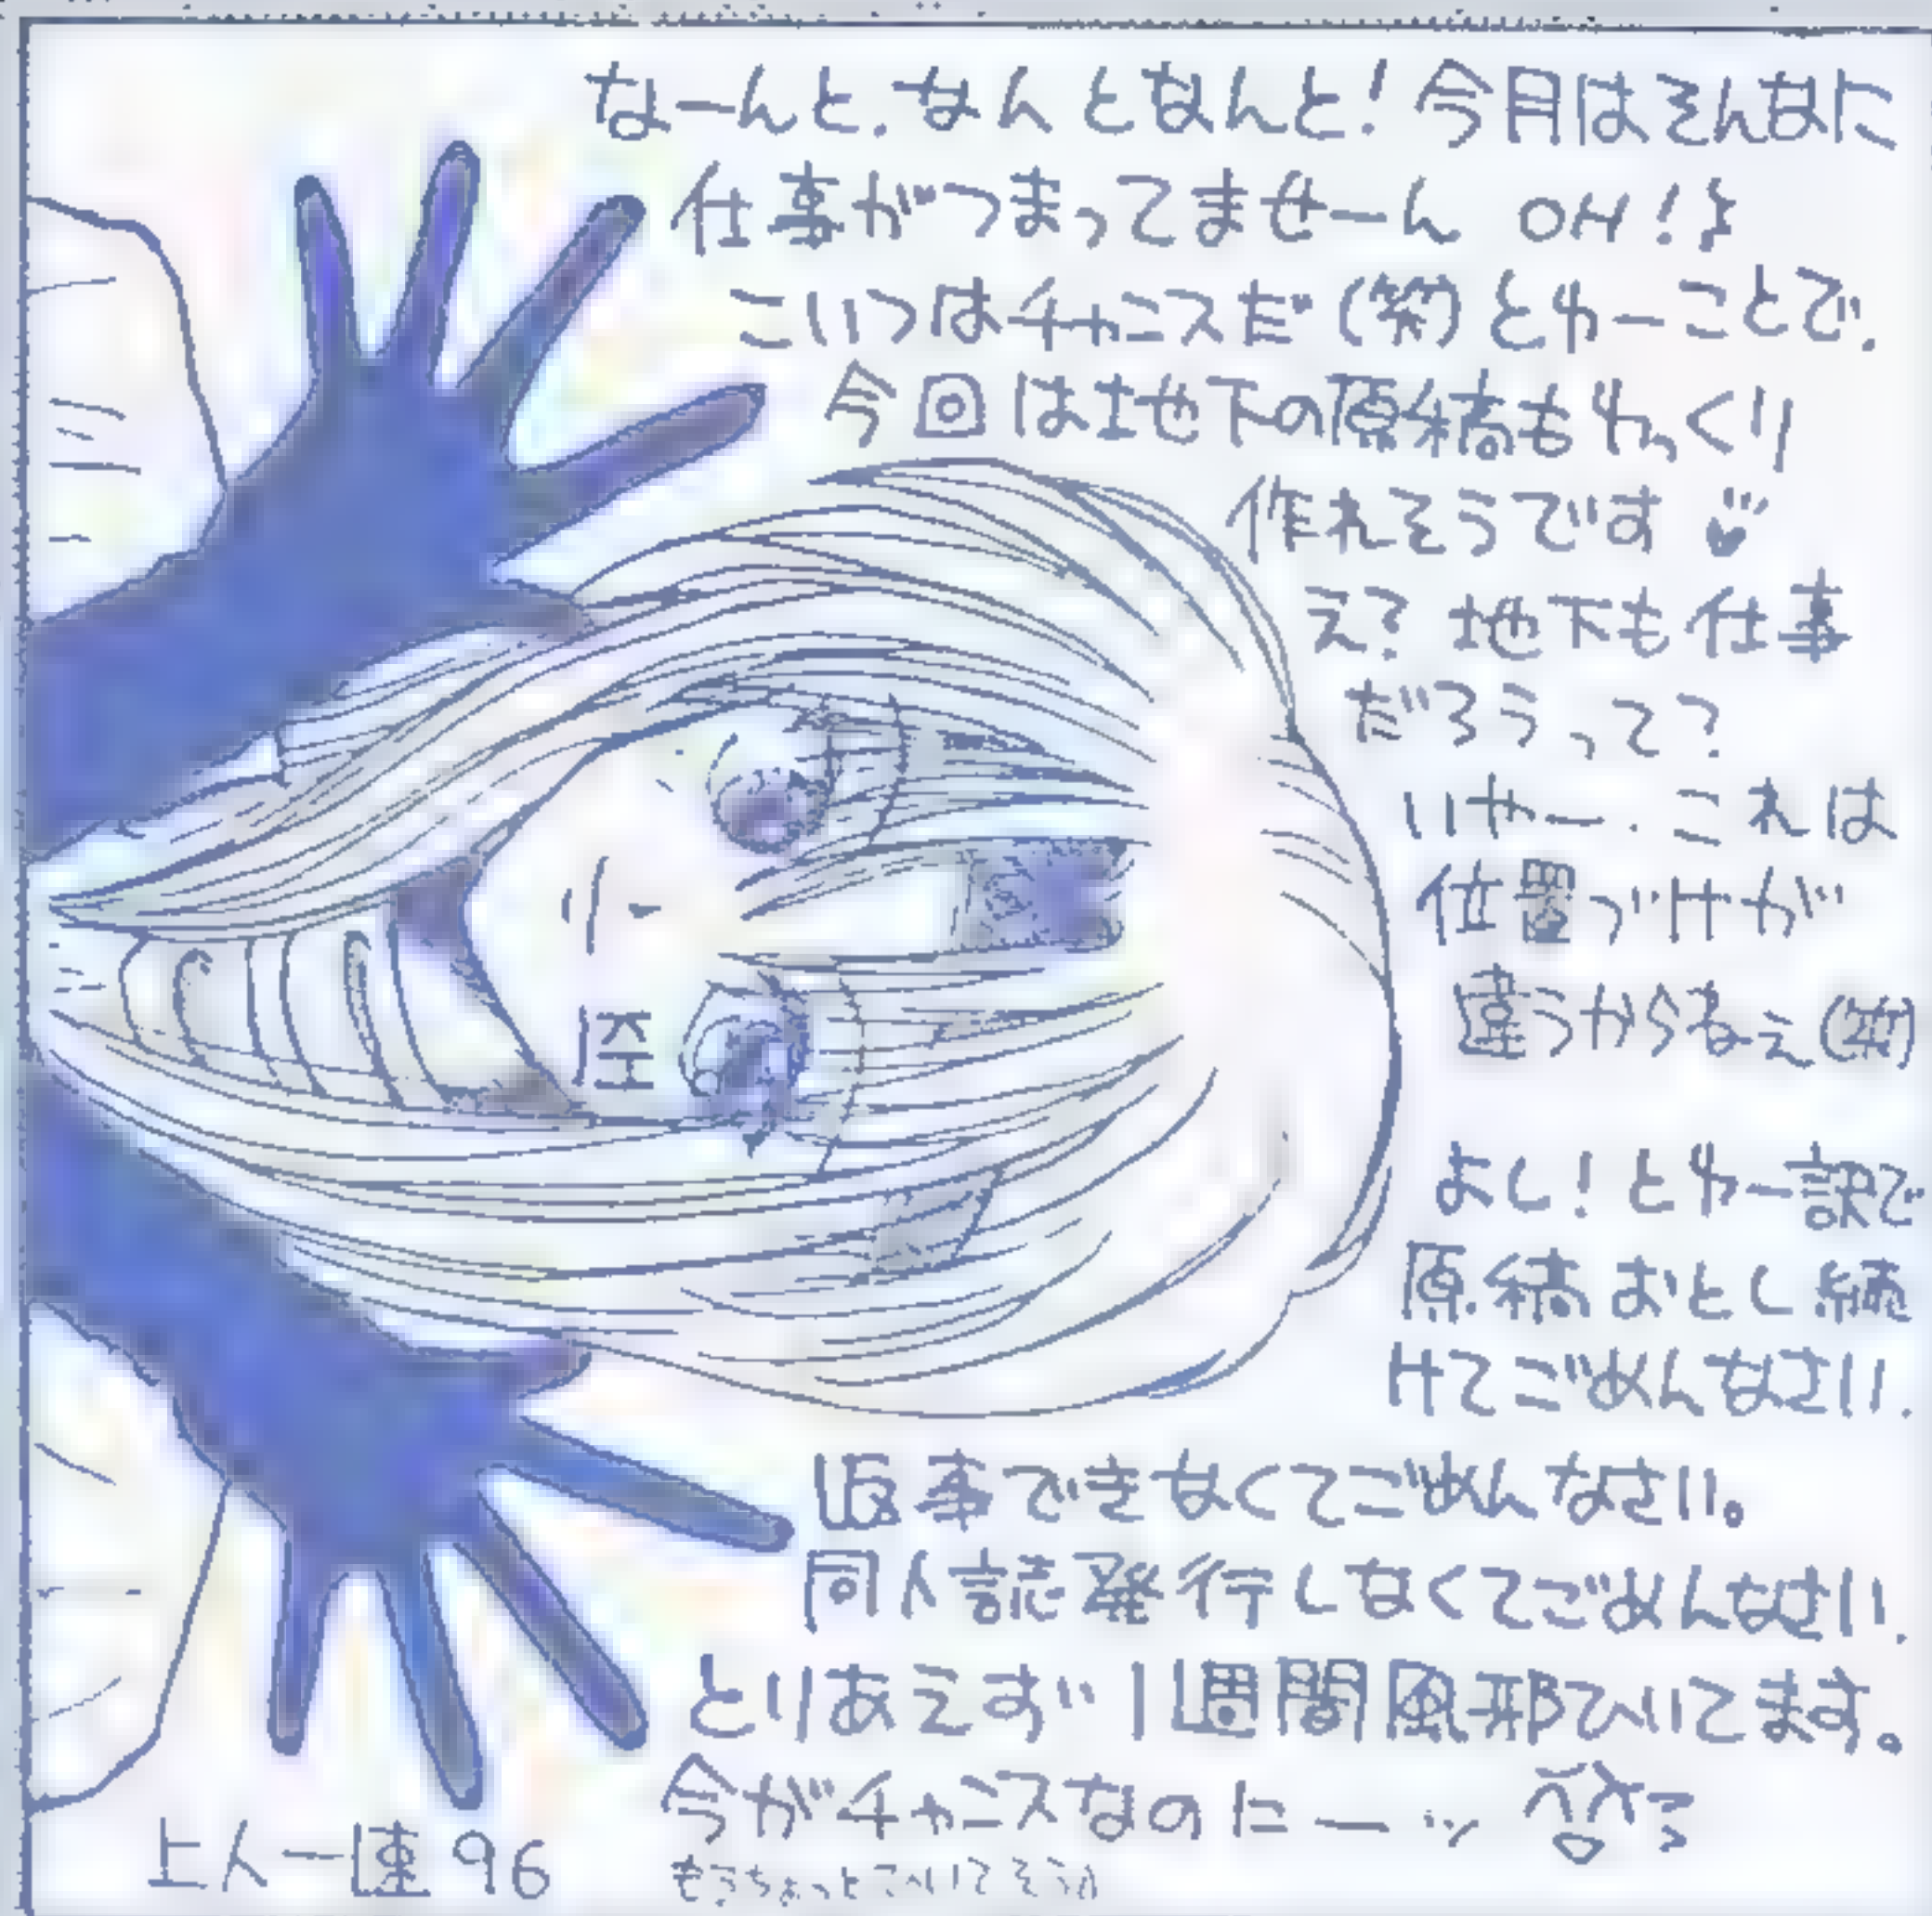 なーんと、なんとなんと!今月はそんなに
仕事がつまってませーん OH!
こいつはチャンスだ(笑)とゆーことで、
今回は地下の原稿もゆっくり
作れそうです
え?地下も仕事
だろうって?
いやー、これは
位置づけが
違うからねえ(笑)
よし!とゆー訳で
原稿おとし続
けてごめんなさい、
返事できなくてごめんなさい。
同人誌発行しなくてごめんなさい、
とりあえず1週間風邪ひいてます。
今がチャンスなのにーッ
もうちょっと
上人一 96